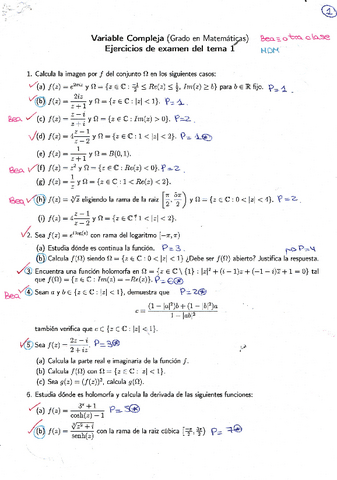 1
Variable Compleja (Grado en Matemáticas)
Ejercicios de examen del tema 1
Bea = otra clase
HDM
1. Calcula la imagen por f del conjunto Ω en los siguientes casos:
(a) f(z) = e^{2πiz} y Ω = {z ∈ C : -1/2 ≤ Re(z) ≤ 1/2, Im(z) ≥ b} para b ∈ R fijo. P=1
(b) f(z) = 2iz/(z+1) y Ω = {z ∈ C : |z| < 1}. P=1
Bea (c) f(z) = (z-1)/(z+i) y Ω = {z ∈ C : Im(z) > 0}. P=2
(d) f(z) = 4(z-1)/(z-2) y Ω = {z ∈ C : 1 < |z| < 2}. P=1
(e) f(z) = 1/(z+1) y Ω = B(0,1).
Bea (f) f(z) = z² y Ω = {z ∈ C : Re(z) < 0}. P=2
(g) f(z) = 1/z y Ω = {z ∈ C : 1 < Re(z) < 2}.
Bea (h) f(z) = √z eligiendo la rama de la raíz [π/2, 5π/2) y Ω = {z ∈ C : 0 < |z| < 4}. P=2
(i) f(z) = 4(z-1)/(z-2) y Ω = {z ∈ C : 1 < |z| < 2}.
2. Sea f(z) = e^{i log(z)} con rama del logaritmo [-π, π)
(a) Estudia dónde es continua la función. P=3
(b) Calcula f(Ω) siendo Ω = {z ∈ C : 0 < |z| < 1} ¿Debe ser f(Ω) abierto? Justifica la respuesta. P=4
3. Encuentra una función holomorfa en Ω = {z ∈ C \ {1} : |z|² + (i-1)z + (-1-i)z̄ + 1 = 0} tal
que f(Ω) = {z ∈ C : Im(z) = -Re(z)}. P=6
Bea 4. Sean a y b ∈ {z ∈ C : |z| < 1}, demuestra que P=2
c = ((1-|a|²)b + (1-|b|²)a)/(1-|ab|²)
también verifica que c ∈ {z ∈ C : |z| < 1}.
5. Sea f(z) = (2z-i)/(2+iz) P=3
(a) Calcula la parte real e imaginaria de la función f.
(b) Calcula f(Ω) con Ω = {z ∈ C : |z| < 1}.
(c) Sea g(z) = (f(z))², calcula g(Ω).
6. Estudia dónde es holomorfa y calcula la derivada de las siguientes funciones:
(a) f(z) = (3^z + 1)/(cosh(z) - 1) P=5
(b) f(z) = ∛(z²+i)/senh(z) con la rama de la raíz cúbica [-π/2, 3π/2) P=7